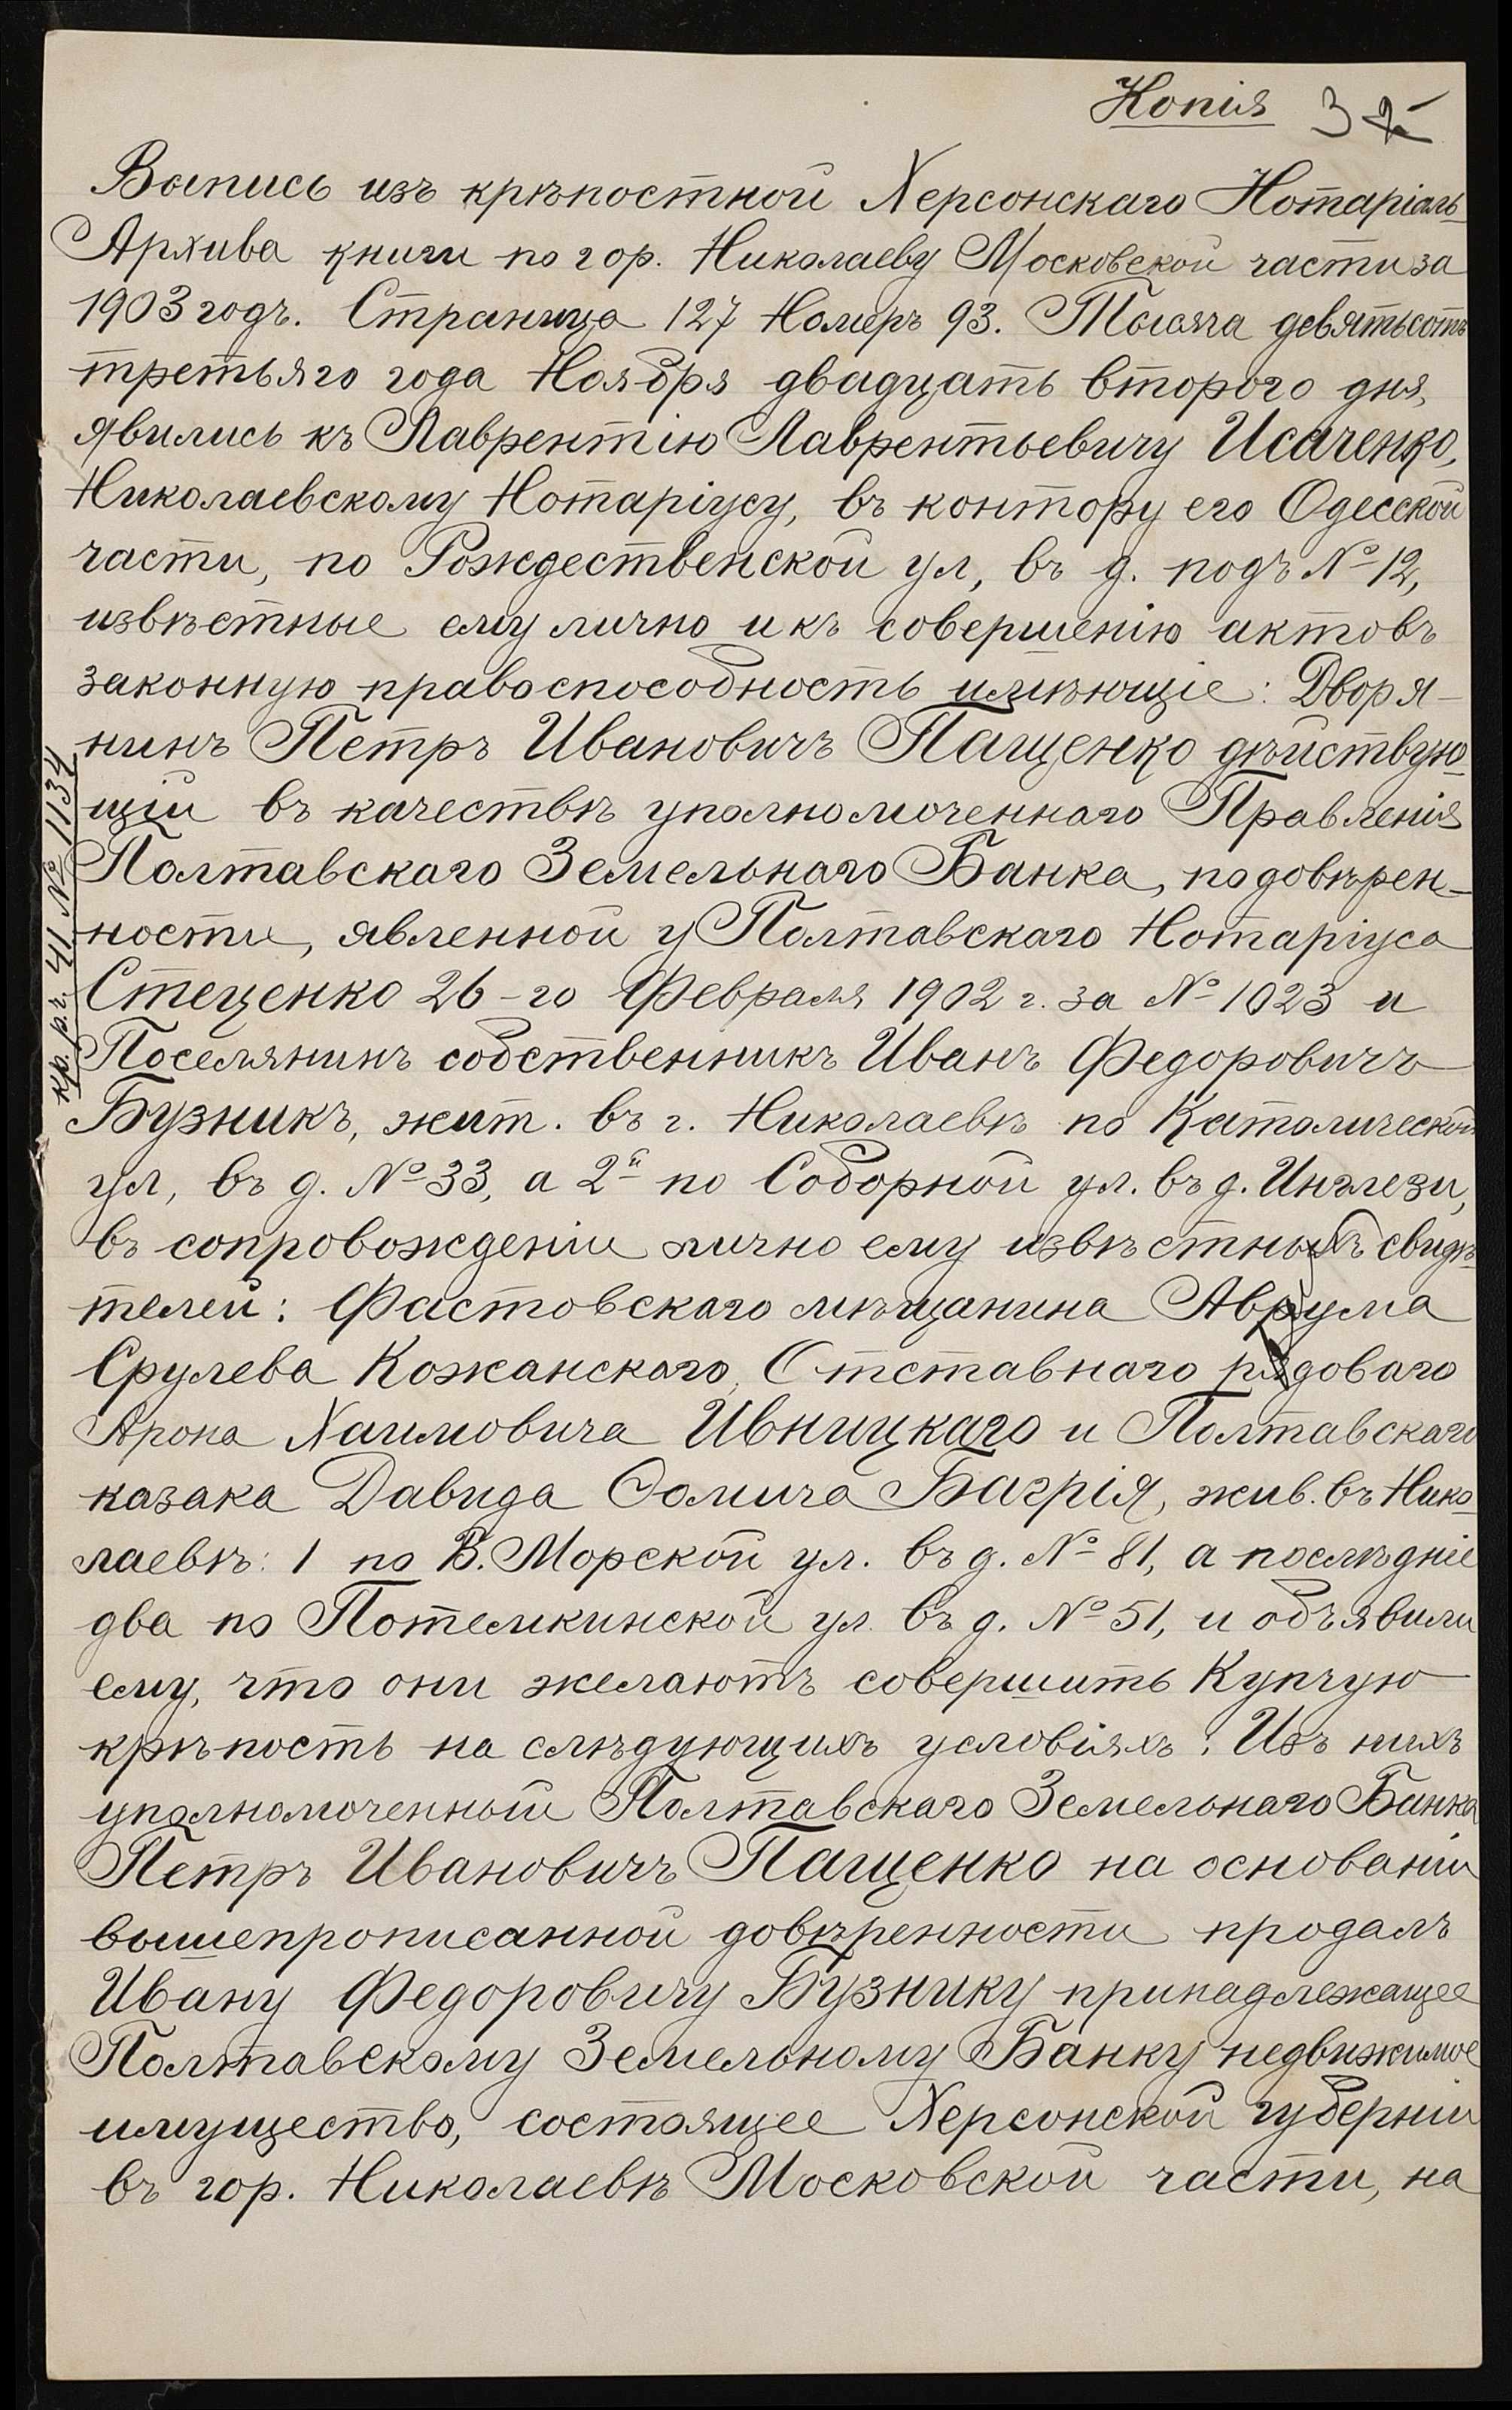 Копія 3
Выпись изъ крѣпостной Херсонскаго Нотаріаль-
Архива книги по гор. Николаеву Московской части за
1903 годъ. Страница 127 Номеръ 93. Тысяча девятьсотъ
третьяго года Ноября двадцать второго дня,
явились къ Лаврентію Лаврентьевичу Исаченко,
Николаевскому Нотаріусу, въ контору его Одесской
части, по Рождественской ул, въ д. подъ № 12,
извѣстные ему лично и къ совершенію актовъ
законную правоспособность имѣющіе: Дворя-
нинъ Петръ Ивановичъ Пащенко дѣйствую-
щій въ качествѣ уполномоченнаго Правленія
Полтавскаго Земельнаго Банка, по довѣрен-
ности, явленной у Полтавскаго Нотаріуса
Стеценко 26-го Февраля 1902 г. за № 1023 и
Поселянинъ собственникъ Иванъ Федоровичъ
Бузникъ, жит. въ г. Николаевѣ по Католической
ул, въ д. № 33, а 2й по Соборной ул. въ д. Инглези,
въ сопровожденіи лично ему извѣстныхъ свидѣ-
телей: Фастовскаго мѣщанина Аврума
Срулева Кожанскаго, Отставнаго рядоваго
Арона Хаимовича Ивницкаго и Полтавскаго
казака Давида Ѳомича Багрія, жив. въ Нико-
лаевѣ: 1 по В. Морской ул. въ д. № 81, а послѣдніе
два по Потемкинской ул. въ д. № 51, и объявили
ему, что они желаютъ совершить Купчую
крѣпость на слѣдующихъ условіяхъ: Изъ нихъ
уполномоченный Полтавскаго Земельнаго Банка
Петръ Ивановичъ Пащенко на основаніи
вышепрописанной довѣренности продалъ
Ивану Федоровичу Бузнику принадлежащее
Полтавскому Земельному Банку недвижимое
имущество, состоящее Херсонской губерніи
въ гор. Николаевѣ Московской части, на
кр. р. г. 41 № 1134